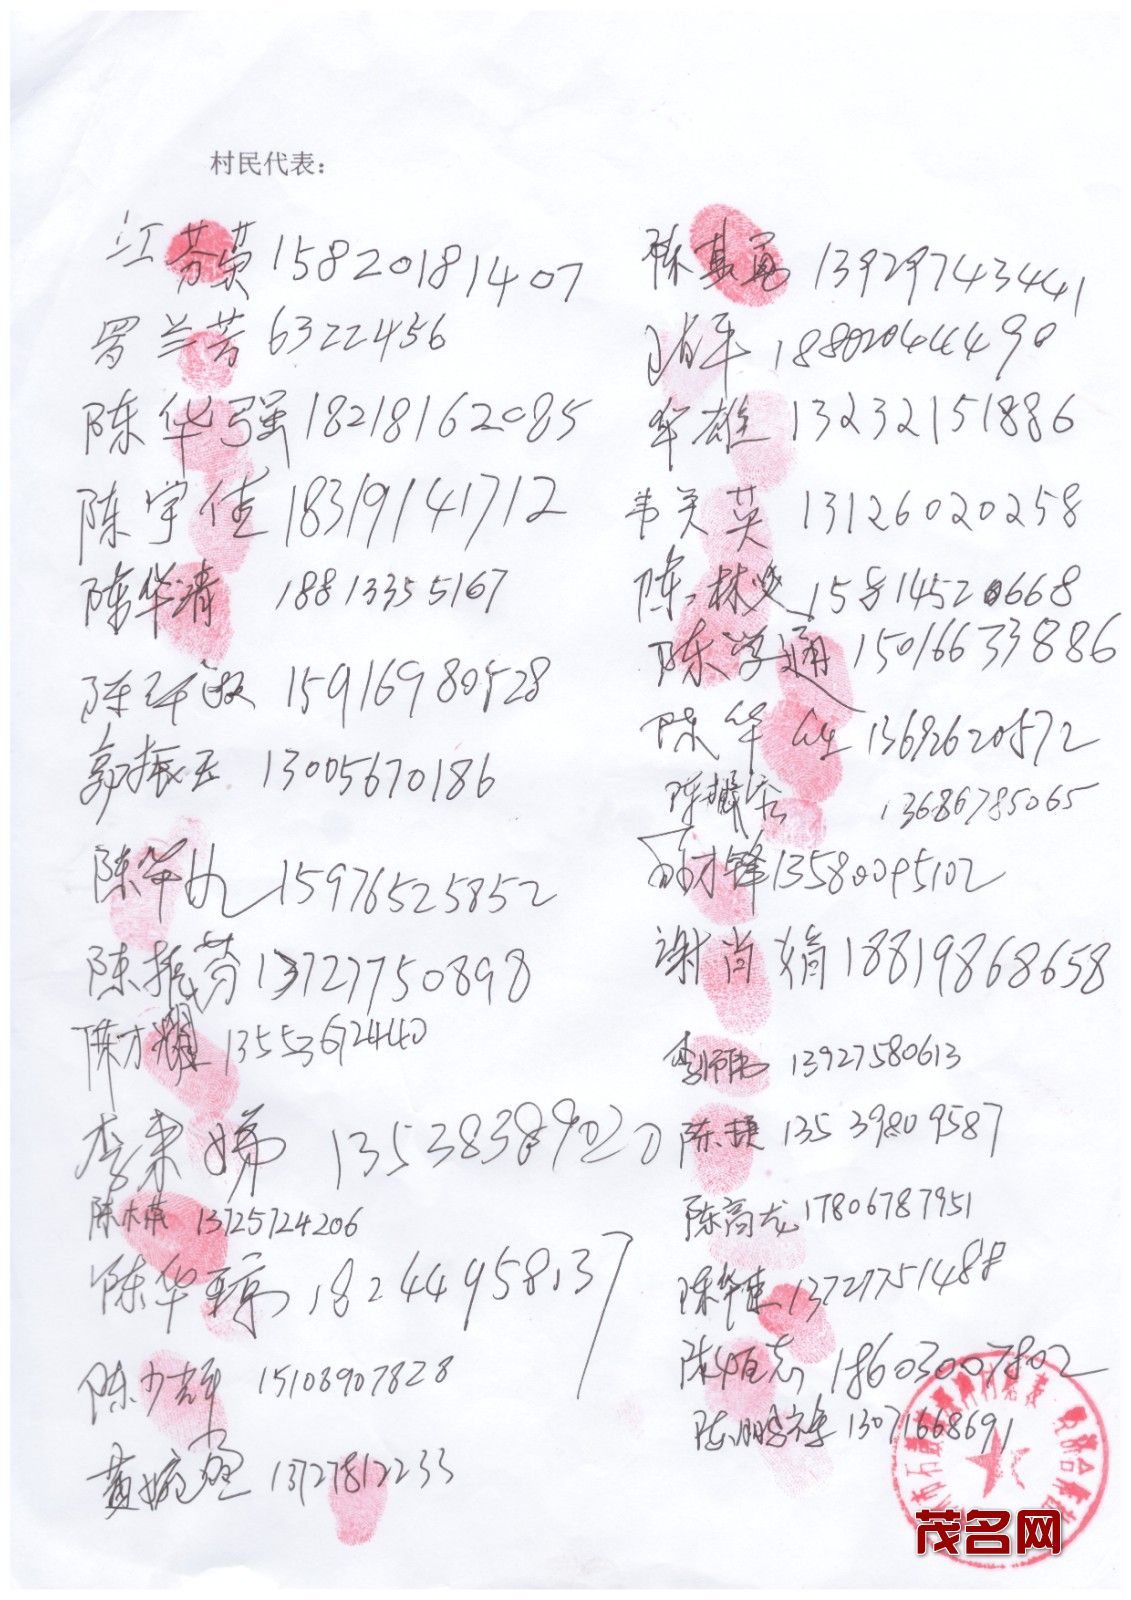 村民代表：
江芬荣 15820181407
罗兰芳 6322456
陈华强 18218162085
陈宇佳 18319141712
陈华清 18813355167
陈 15916980528
郭振玉 13005670186
陈华 15976525852
陈振芬 13727750898
陈才耀 13553672440
李来娣 13538389020
陈木燕 13725724206
陈华琼 18244958137
陈少辉 15108907828
黄婉 13727812233
陈 13929743441
18802044490
华雄 13232151886
韦关英 13126020258
陈林 15814520668
陈学通 15016633886
陈华 13692620572
陈 13686785065
才锋 13580095102
谢尚娟 18819868658
李 13927580613
陈捷 13539809587
陈高龙 17806787951
陈华 13727751488
陈恒志 18603007802
陈鹏 13071668691
茂名网